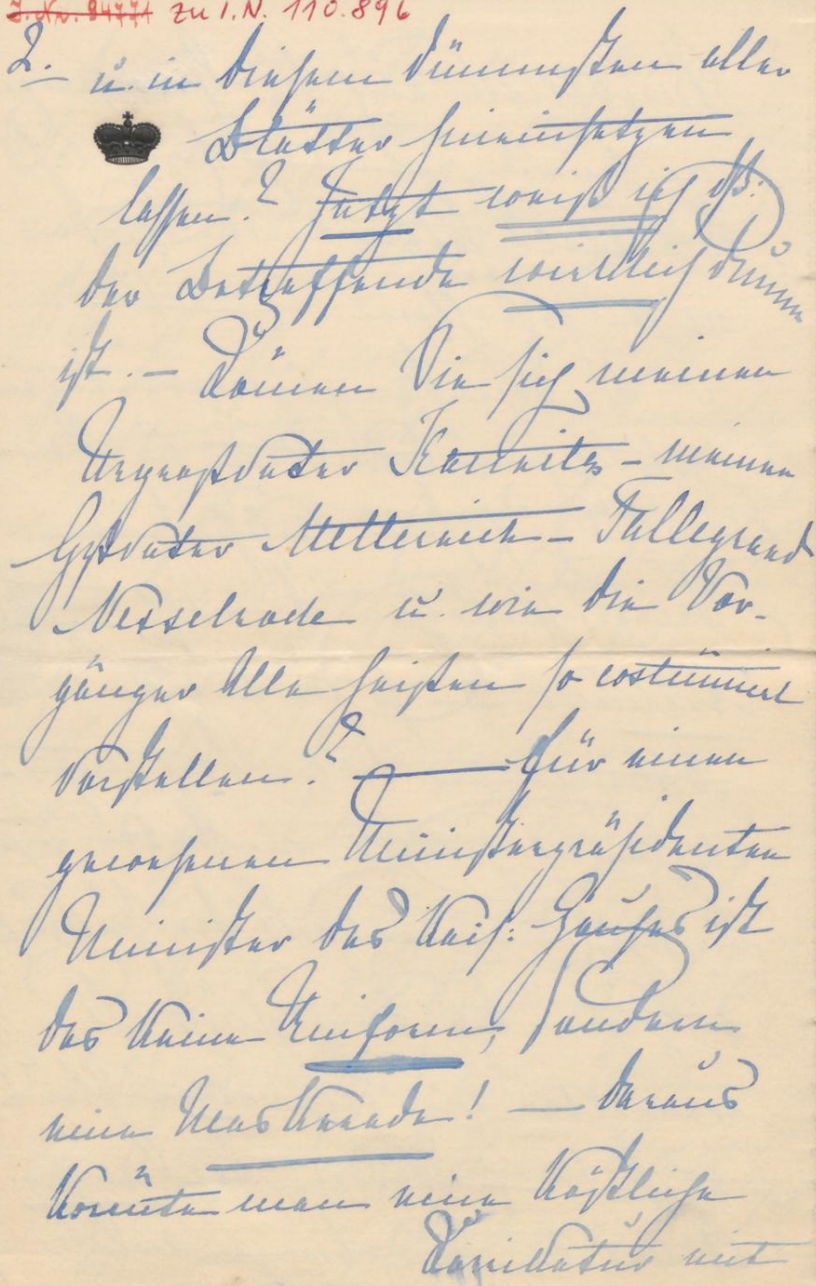 J. Nr. 84771 zu I.N. 110.896
2. u. in diesem dümmsten aller
Blätter hineinsetzen
lassen? Jetzt weiß ich dß:
der Betreffende wirklich dumm
ist. — Können Sie sich meinen
Urgroßvater Kaunitz – meinen
Großvater Metternich – Tallegrand
Nesselrode u. wie die Vor-
gänger Alle heißen so costümirt
vorstellen? — für einen
gewesenen Ministerpräsidenten
Minister des Kais: Hauses ist
das keine Uniform, sondern
eine Maskerade! — daraus
könnte man eine köstliche
Karrikatur mit